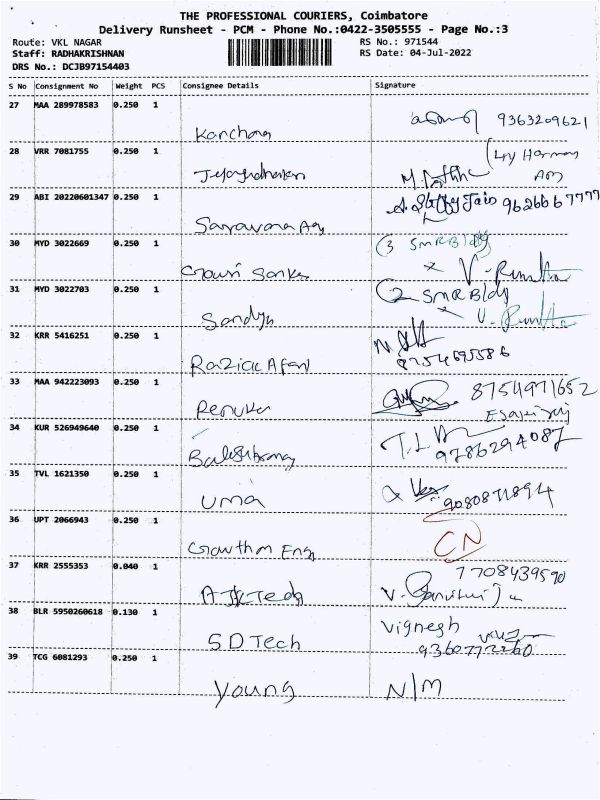 THE PROFESSIONAL COURIERS, Coimbatore
Delivery Runsheet - PCM - Phone No.:0422-3505555 - Page No.:3
Route: VKL NAGAR
Staff: RADHAKRISHNAN
DRS No.: DCJB97154403
RS No.: 971544
RS Date: 04-Jul-2022
S No Consignment No Weight PCS Consignee Details Signature
27 MAA 289978583 0.250 1
Kanchana 9363209621
28 VRR 7081755 0.250 1
29 ABI 20220601347 0.250 1
Saravana Ag
30 MYD 3022669 0.250 1
3 SMR Bldg
Gowri Sankar
31 MYD 3022703 0.250 1
2 SMR Bldg
Sandya
32 KRR 5416251 0.250 1
8754695586
33 MAA 942223093 0.250 1
8754971652
Renuka
34 KUR 526949640 0.250 1
9786294087
35 TVL 1621350 0.250 1
Uma
36 UPT 2066943 0.250 1
CN
Gowtham Eng
37 KRR 2555353 0.040 1
7708439590
38 BLR 5950260618 0.130 1
Vignesh
S D Tech
39 TCG 6081293 0.250 1
Young N/M